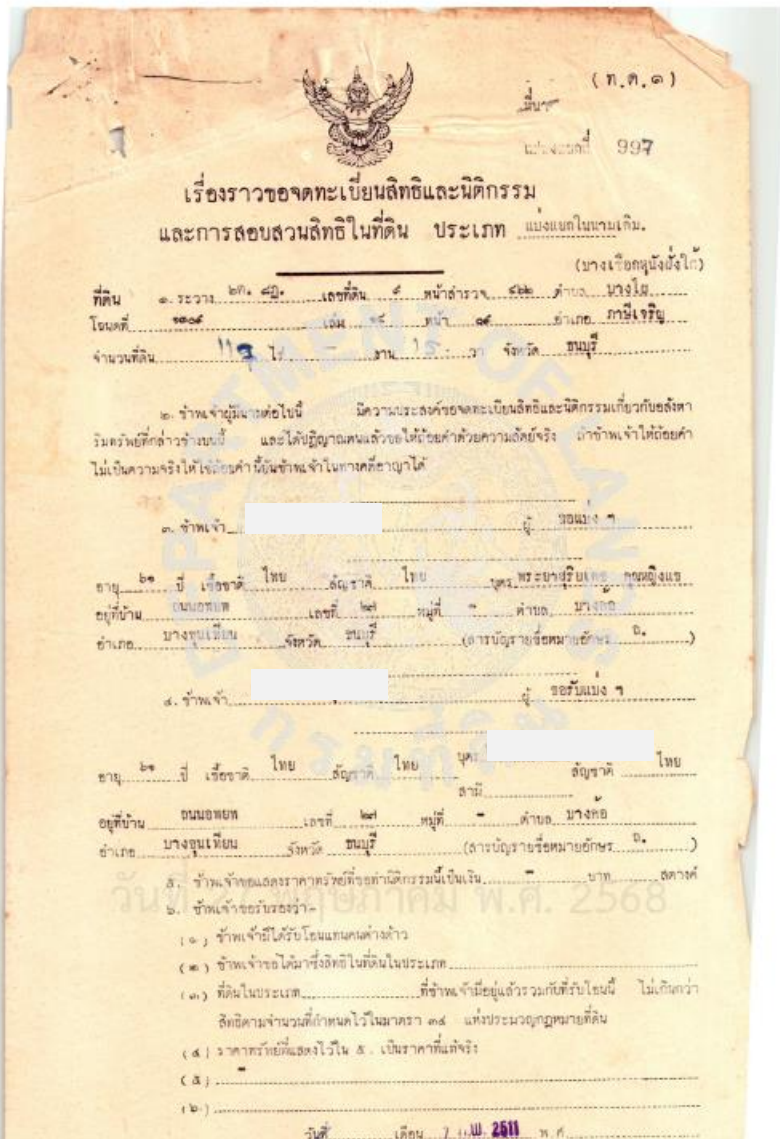 (ท.ด.๑)
997
เรื่องราวขอจดทะเบียนสิทธิและนิติกรรม
และการสอบสวนสิทธิในที่ดิน ประเภท แบ่งแยกในนามเดิม.
(บางเชือกหนังฝั่งใต้)
ที่ดิน ๑. ระวาง เลขที่ดิน ๙ หน้าสำรวจ ตำบล บางไผ่
โฉนดที่ เล่ม หน้า อำเภอ ภาษีเจริญ
จำนวนที่ดิน ไร่ งาน วา จังหวัด ธนบุรี
๒. ข้าพเจ้าผู้มีนามต่อไปนี้ มีความประสงค์ขอจดทะเบียนสิทธิและนิติกรรมเกี่ยวกับอสังหา
ริมทรัพย์ที่กล่าวข้างบนนี้ และได้ปฏิญาณตนแล้วขอให้ถ้อยคำด้วยความสัตย์จริง ถ้าข้าพเจ้าให้ถ้อยคำ
ไม่เป็นความจริงให้ใช้ถ้อยคำนี้ยันข้าพเจ้าในทางคดีอาญาได้
๓. ข้าพเจ้า ผู้ ขอแบ่ง ฯ
อายุ ๖๑ ปี เชื้อชาติ ไทย สัญชาติ ไทย บุตร
อยู่ที่บ้าน ถนนอพยพ เลขที่ ๒๗ หมู่ที่ - ตำบล บางค้อ
อำเภอ บางขุนเทียน จังหวัด ธนบุรี (สารบัญรายชื่อหมายอักษร )
๔. ข้าพเจ้า ผู้ ขอรับแบ่ง ฯ
อายุ ๖๑ ปี เชื้อชาติ ไทย สัญชาติ ไทย บุตร สัญชาติ ไทย
สามี
อยู่ที่บ้าน ถนนอพยพ เลขที่ ๒๗ หมู่ที่ - ตำบล บางค้อ
อำเภอ บางขุนเทียน จังหวัด ธนบุรี (สารบัญรายชื่อหมายอักษร )
๕. ข้าพเจ้าขอแสดงราคาทรัพย์ที่ขอทำนิติกรรมนี้เป็นเงิน - บาท สตางค์
๖. ข้าพเจ้าขอรับรองว่า:-
(๑) ข้าพเจ้ามิได้รับโอนแทนคนต่างด้าว
(๒) ข้าพเจ้าขอได้มาซึ่งสิทธิในที่ดินในประเภท
(๓) ที่ดินในประเภท ที่ข้าพเจ้ามีอยู่แล้วรวมกับที่รับโอนนี้ ไม่เกินกว่า
สิทธิตามจำนวนที่กำหนดไว้ในมาตรา ๓๔ แห่งประมวลกฎหมายที่ดิน
(๔) ราคาทรัพย์ที่แสดงไว้ใน ๕. เป็นราคาที่แท้จริง
(๕) -
(๖)
วันที่ เดือน 2511 พ.ศ.
DEPARTMENT OF LANDS
กรมที่ดิน
พฤษภาคม พ.ศ. 2568